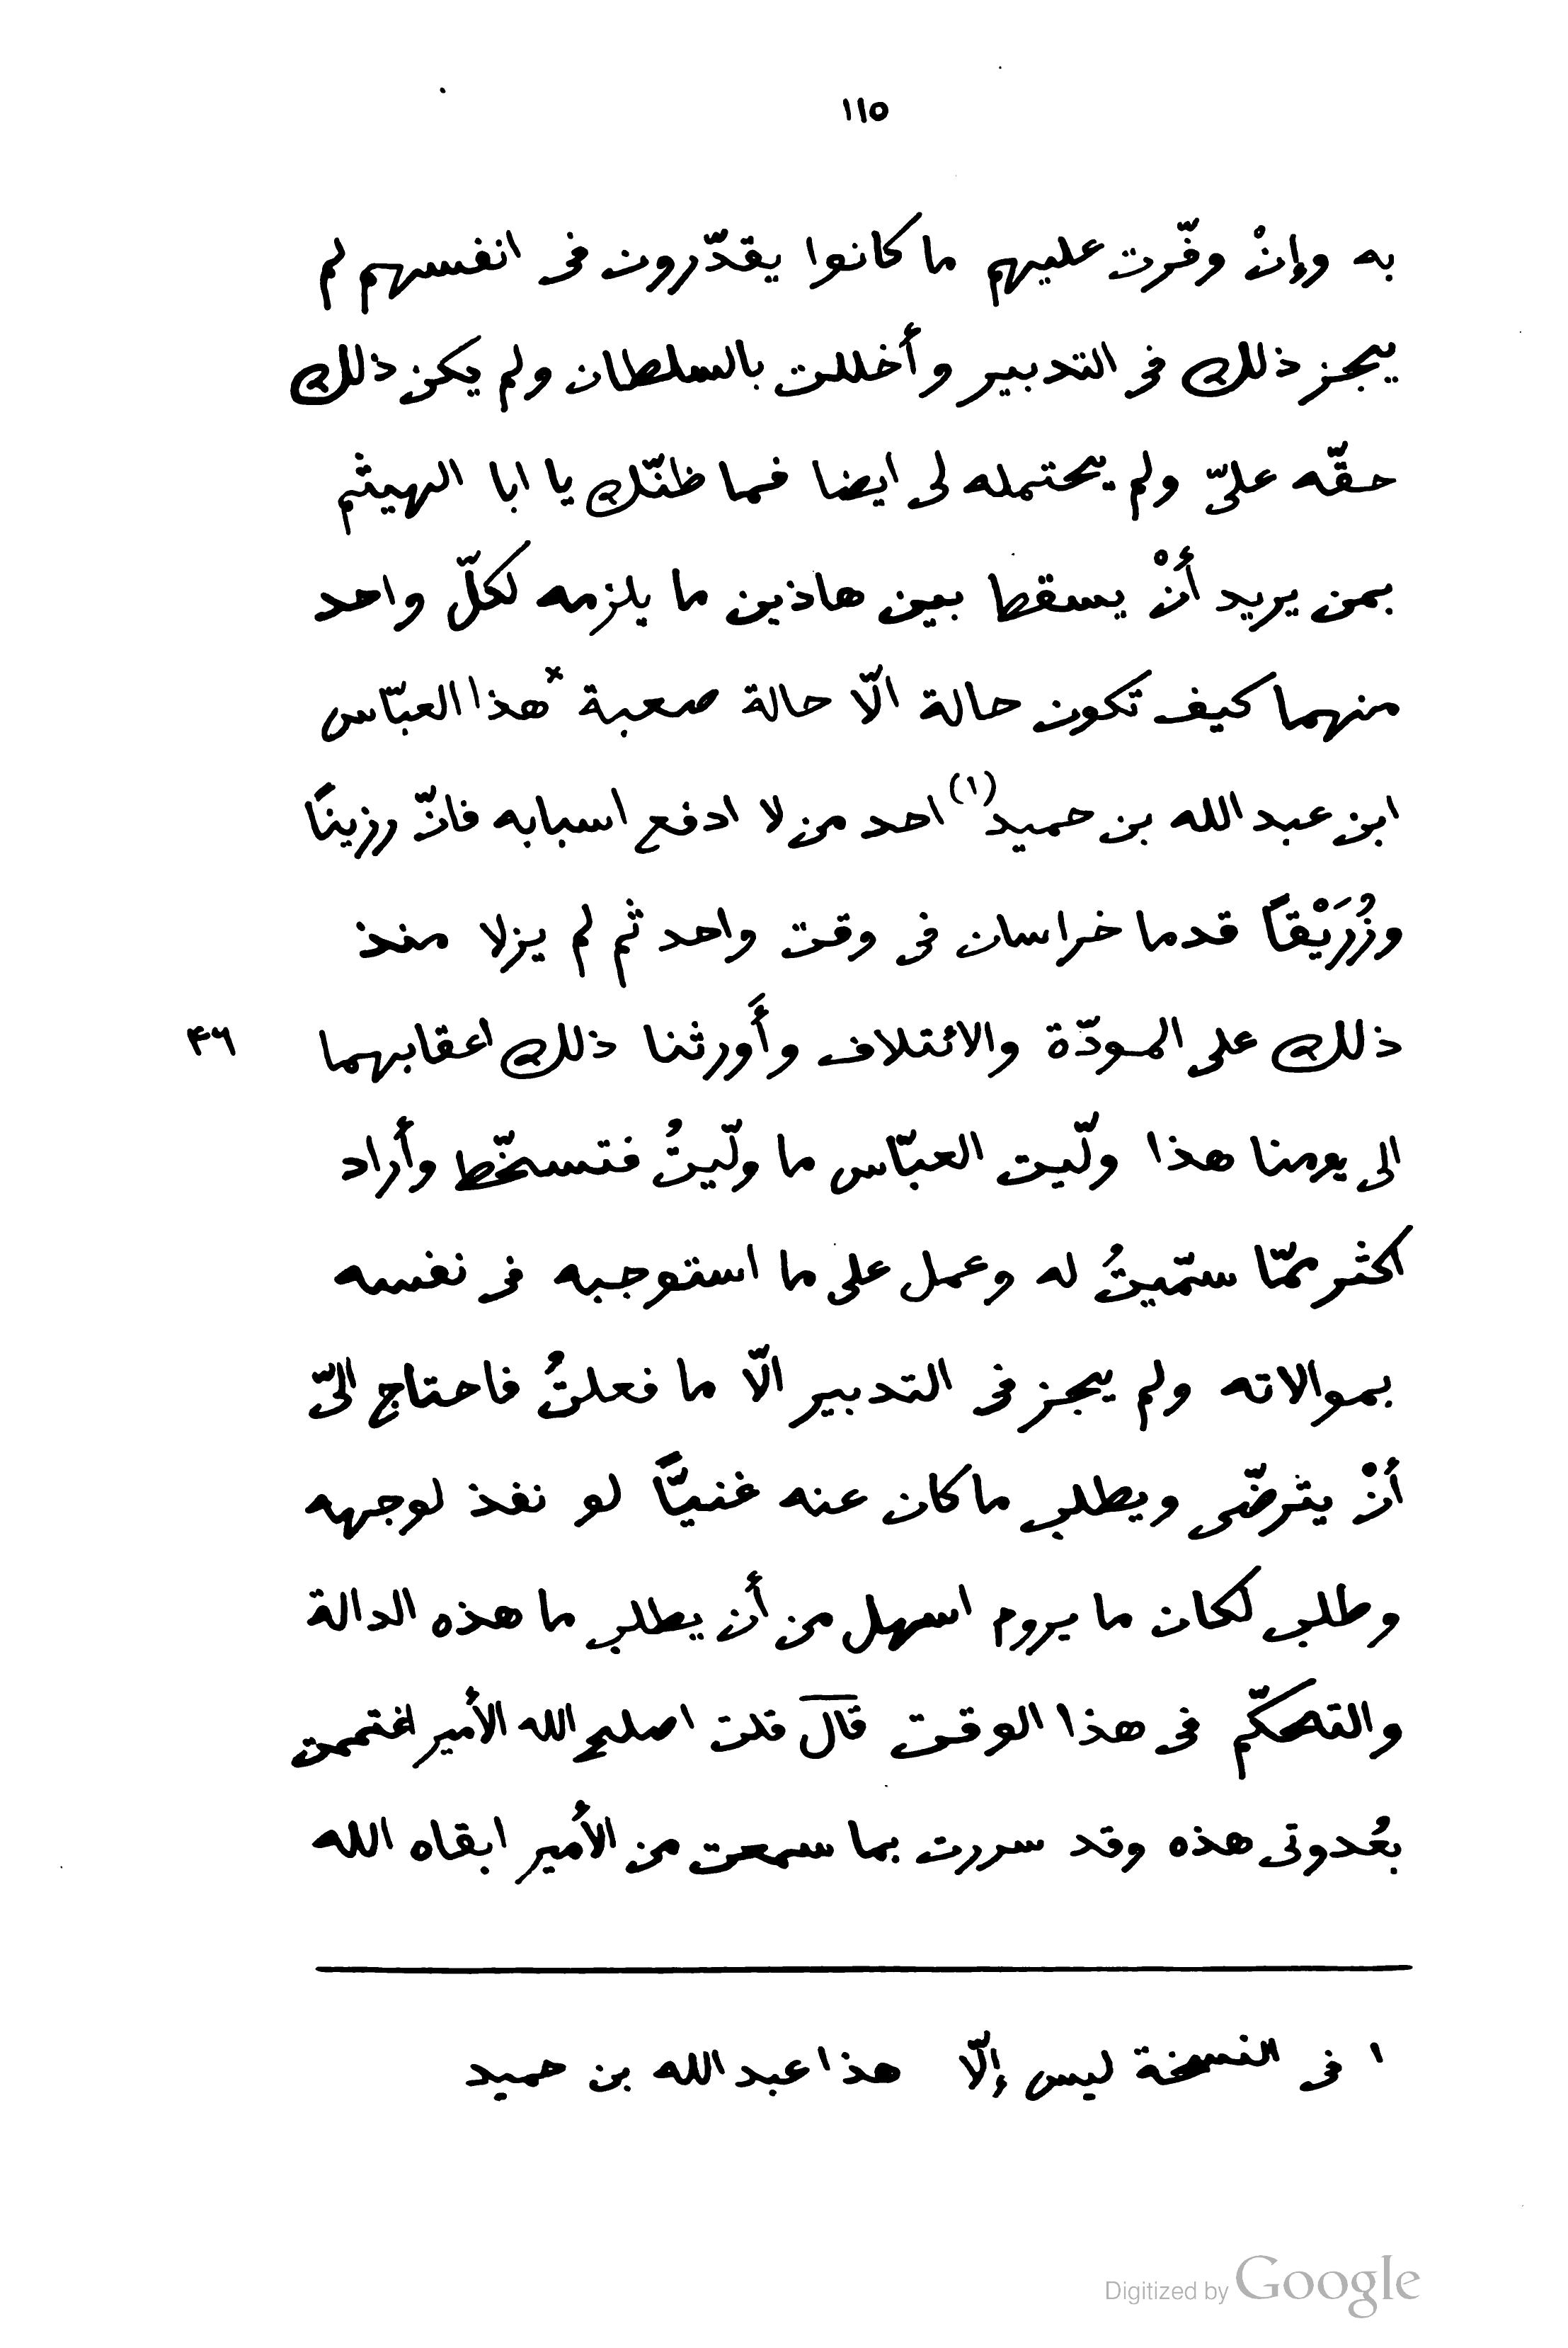 ١١٥
به وإنْ وفّرت عليهم ما كانوا يقدّرون فى انفسهم لم
يجز ذلك فى التدبير وأخللت بالسلطان ولم يكن ذلك
حقّه علىّ ولم يحتمله لى ايضا فما ظنّك يا ابا الهيثم
بمن يريد أنْ يسقط بين هاذين ما يلزمه لكلّ واحد
منهما كيف تكون حالة الّا حالة صعبة *هذا العبّاس
ابن عبد الله بن حميد(١) احد من لا ادفع اسبابه فانّ رزيناً
وزُرَيْقاً قدما خراسان فى وقت واحد ثم لم يزلا منذ
ذلك على المودّة والائتلاف وأَورثنا ذلك اعقابهما ۴٦
الى يومنا هذا ولّيت العبّاس ما ولّيتُ فتسخّط وأراد
اكثر ممّا سمّيتُ له وعمل على ما استوجبه فى نفسه
بموالاته ولم يجز فى التدبير الّا ما فعلتُ فاحتاج الىّ
أنْ يثرضّى ويطلب ما كان عنه غنيّاً لو نفذ لوجهه
وطلب لكان ما يروم اسهل من أن يطلب ما هذه الدالة
والتحكّم فى هذا الوقت قال قلت اصلح الله الأمير اغتممت
بغُدوتى هذه وقد سررت بما سمعت من الأمير ابقاه الله
١ فى النسخة ليس إلّا هذا عبد الله بن حميد
Digitized by Google